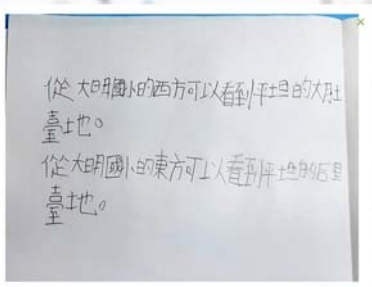 從大明國小的西方可以看到平坦的大肚
臺地。
從大明國小的東方可以看到平坦的后里
臺地。